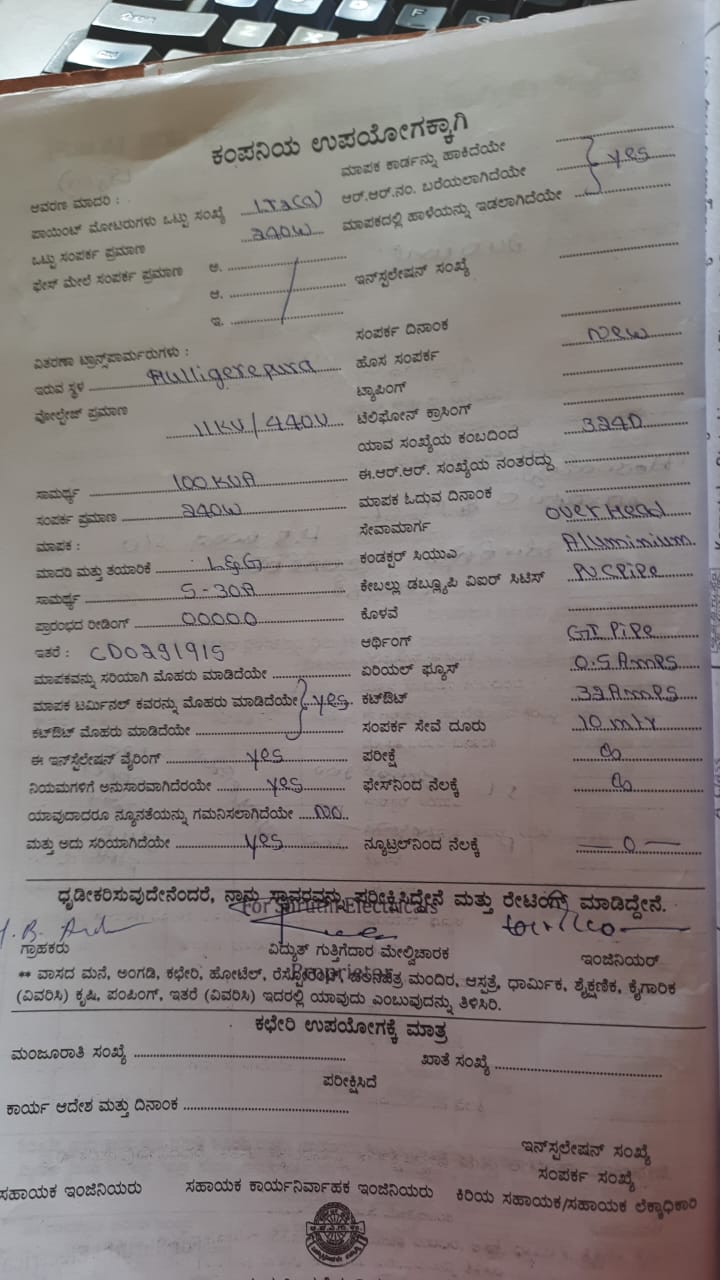 ಕಂಪನಿಯ ಉಪಯೋಗಕ್ಕಾಗಿ
ಆವರಣ ಮಾದರಿ :
ಮಾಪಕ ಕಾರ್ಡನ್ನು ಹಾಕಿದೆಯೇ
ಪಾಯಿಂಟ್ ಮೋಟರುಗಳು ಒಟ್ಟು ಸಂಖ್ಯೆ LT2(a)
ಆರ್.ಆರ್.ನಂ. ಬರೆಯಲಾಗಿದೆಯೇ yes
ಒಟ್ಟು ಸಂಪರ್ಕ ಪ್ರಮಾಣ 240W
ಮಾಪಕದಲ್ಲಿ ಹಾಳೆಯನ್ನು ಇಡಲಾಗಿದೆಯೇ
ಫೇಸ್ ಮೇಲೆ ಸಂಪರ್ಕ ಪ್ರಮಾಣ ಅ.
ಆ. ಇನ್‌ಸ್ಟಲೇಷನ್ ಸಂಖ್ಯೆ
ಇ.
ಸಂಪರ್ಕ ದಿನಾಂಕ
ವಿತರಣಾ ಟ್ರಾನ್ಸ್‌ಫಾರ್ಮರುಗಳು :
ಹೊಸ ಸಂಪರ್ಕ New
ಇರುವ ಸ್ಥಳ Hulligerepura
ಟ್ಯಾಪಿಂಗ್
ವೋಲ್ಟೇಜ್ ಪ್ರಮಾಣ 11KV/440V
ಟೆಲಿಫೋನ್ ಕ್ರಾಸಿಂಗ್
ಯಾವ ಸಂಖ್ಯೆಯ ಕಂಬದಿಂದ
ಸಾಮರ್ಥ್ಯ 100 KVA
ಈ.ಆರ್.ಆರ್. ಸಂಖ್ಯೆಯ ನಂತರದ್ದು
ಸಂಪರ್ಕ ಪ್ರಮಾಣ 240W
ಮಾಪಕ ಓದುವ ದಿನಾಂಕ
ಮಾಪಕ :
ಸೇವಾಮಾರ್ಗ over Head
ಮಾದರಿ ಮತ್ತು ತಯಾರಿಕೆ L&G
ಕಂಡಕ್ಟರ್ ಸಿಯುಎ Aluminium
ಸಾಮರ್ಥ್ಯ 5-30A
ಕೇಬಲ್ಲು ಡಬ್ಲ್ಯೂಪಿ ವಿಐಆರ್ ಸಿಟಿಸ್ PVC Pipe
ಪ್ರಾರಂಭದ ರೀಡಿಂಗ್ 00000
ಕೊಳವೆ
ಇತರೆ : CD0291915
ಆರ್ಥಿಂಗ್ GI Pipe
ಮಾಪಕವನ್ನು ಸರಿಯಾಗಿ ಮೊಹರು ಮಾಡಿದೆಯೇ
ಏರಿಯಲ್ ಫ್ಯೂಸ್ 0.5 Amps
ಮಾಪಕ ಟರ್ಮಿನಲ್ ಕವರನ್ನು ಮೊಹರು ಮಾಡಿದೆಯೇ yes
ಕಟ್‌ಔಟ್ 32 Amps
ಕಟ್‌ಔಟ್ ಮೊಹರು ಮಾಡಿದೆಯೇ
ಸಂಪರ್ಕ ಸೇವೆ ದೂರು 10 mtr
ಈ ಇನ್‌ಸ್ಟಲೇಷನ್ ವೈರಿಂಗ್ yes
ಪರೀಕ್ಷೆ
ನಿಯಮಗಳಿಗೆ ಅನುಸಾರವಾಗಿದೆರಯೇ yes
ಫೇಸ್‌ನಿಂದ ನೆಲಕ್ಕೆ
ಯಾವುದಾದರೂ ನ್ಯೂನತೆಯನ್ನು ಗಮನಿಸಲಾಗಿದೆಯೇ No
ಮತ್ತು ಅದು ಸರಿಯಾಗಿದೆಯೇ yes
ನ್ಯೂಟ್ರಲ್‌ನಿಂದ ನೆಲಕ್ಕೆ 0
ಧೃಡೀಕರಿಸುವುದೇನೆಂದರೆ, ನಾನು ಸ್ಥಾವರವನ್ನು ಪರೀಕ್ಷಿಸಿದ್ದೇನೆ ಮತ್ತು ರೇಟಿಂಗ್ ಮಾಡಿದ್ದೇನೆ.
For Shruthi Electricals
ಗ್ರಾಹಕರು ವಿದ್ಯುತ್ ಗುತ್ತಿಗೆದಾರ ಮೇಲ್ವಿಚಾರಕ ಇಂಜಿನಿಯರ್
Proprietor
** ವಾಸದ ಮನೆ, ಅಂಗಡಿ, ಕಛೇರಿ, ಹೋಟೆಲ್, ರೆಸ್ಟೋರೆಂಟ್, ಚಲನಚಿತ್ರ ಮಂದಿರ, ಆಸ್ಪತ್ರೆ, ಧಾರ್ಮಿಕ, ಶೈಕ್ಷಣಿಕ, ಕೈಗಾರಿಕ
(ವಿವರಿಸಿ) ಕೃಷಿ, ಪಂಪಿಂಗ್, ಇತರೆ (ವಿವರಿಸಿ) ಇದರಲ್ಲಿ ಯಾವುದು ಎಂಬುವುದನ್ನು ತಿಳಿಸಿರಿ.
ಕಛೇರಿ ಉಪಯೋಗಕ್ಕೆ ಮಾತ್ರ
ಮಂಜೂರಾತಿ ಸಂಖ್ಯೆ ಖಾತೆ ಸಂಖ್ಯೆ
ಪರೀಕ್ಷಿಸಿದೆ
ಕಾರ್ಯ ಆದೇಶ ಮತ್ತು ದಿನಾಂಕ
ಇನ್‌ಸ್ಟಲೇಷನ್ ಸಂಖ್ಯೆ
ಸಂಪರ್ಕ ಸಂಖ್ಯೆ
ಸಹಾಯಕ ಇಂಜಿನಿಯರು ಸಹಾಯಕ ಕಾರ್ಯನಿರ್ವಾಹಕ ಇಂಜಿನಿಯರು ಕಿರಿಯ ಸಹಾಯಕ/ಸಹಾಯಕ ಲೆಕ್ಕಾಧಿಕಾರಿ